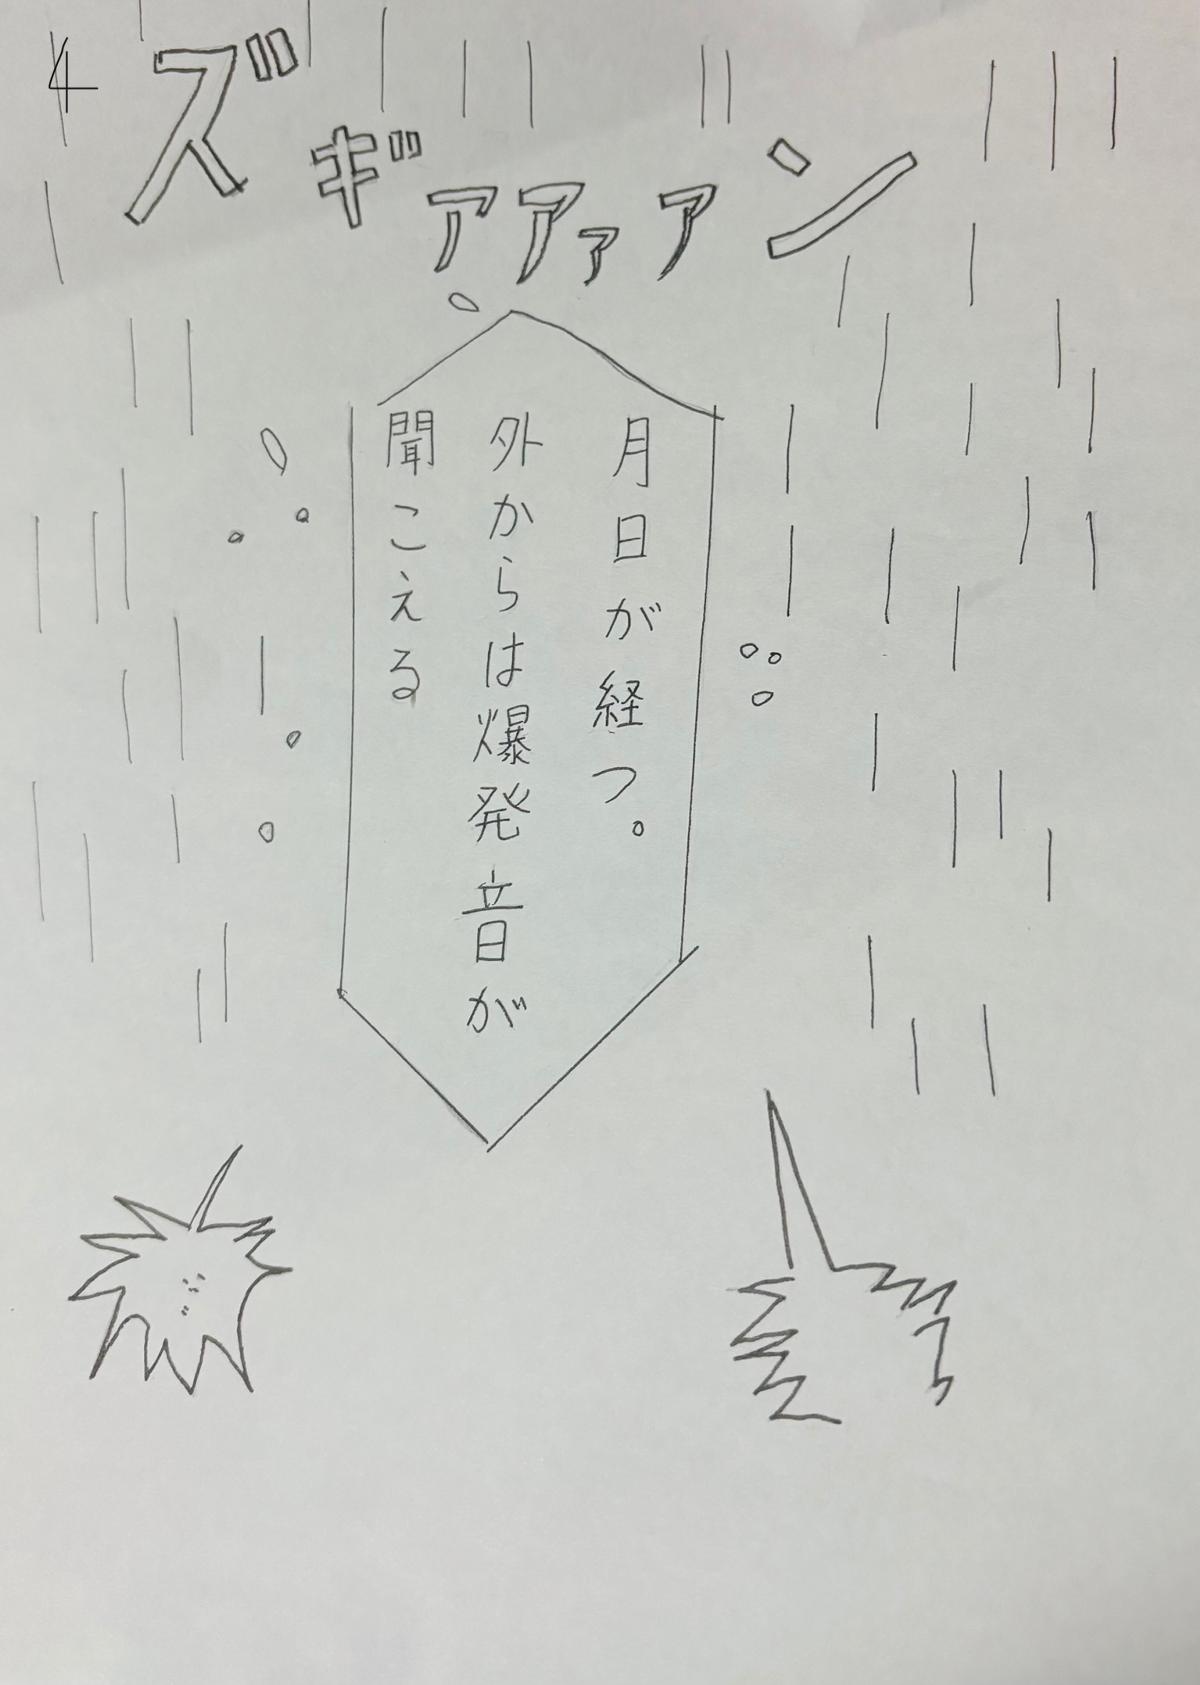 4
ズギァアァアン
月日が経つ。
外からは爆発音が
聞こえる